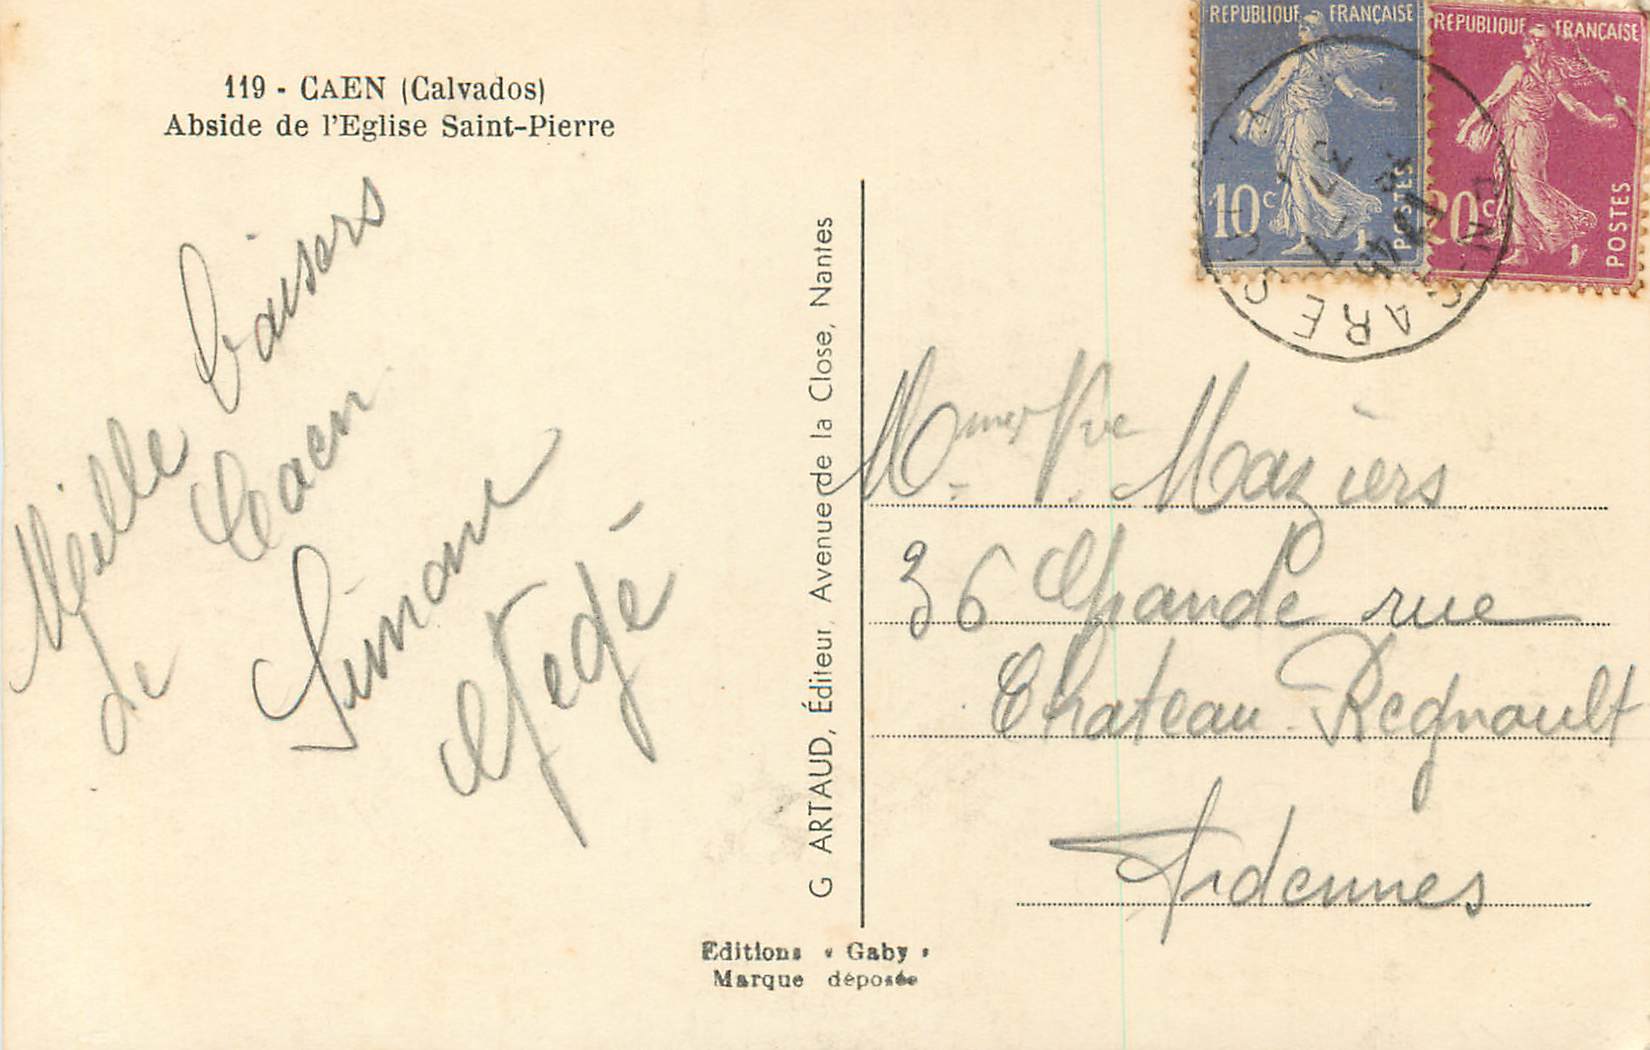 119 - CAEN (Calvados)
Abside de l'Eglise Saint-Pierre
Mille baisers
de Caen
Simone
Gégé
G ARTAUD, Éditeur, Avenue de la Close, Nantes
Editions « Gaby »
Marque déposée
REPUBLIQUE FRANÇAISE
10c
POSTES
REPUBLIQUE FRANÇAISE
20c
POSTES
GARE
Mme Vve V. Maziers
36 Grande rue
Chateau-Regnault
Ardennes